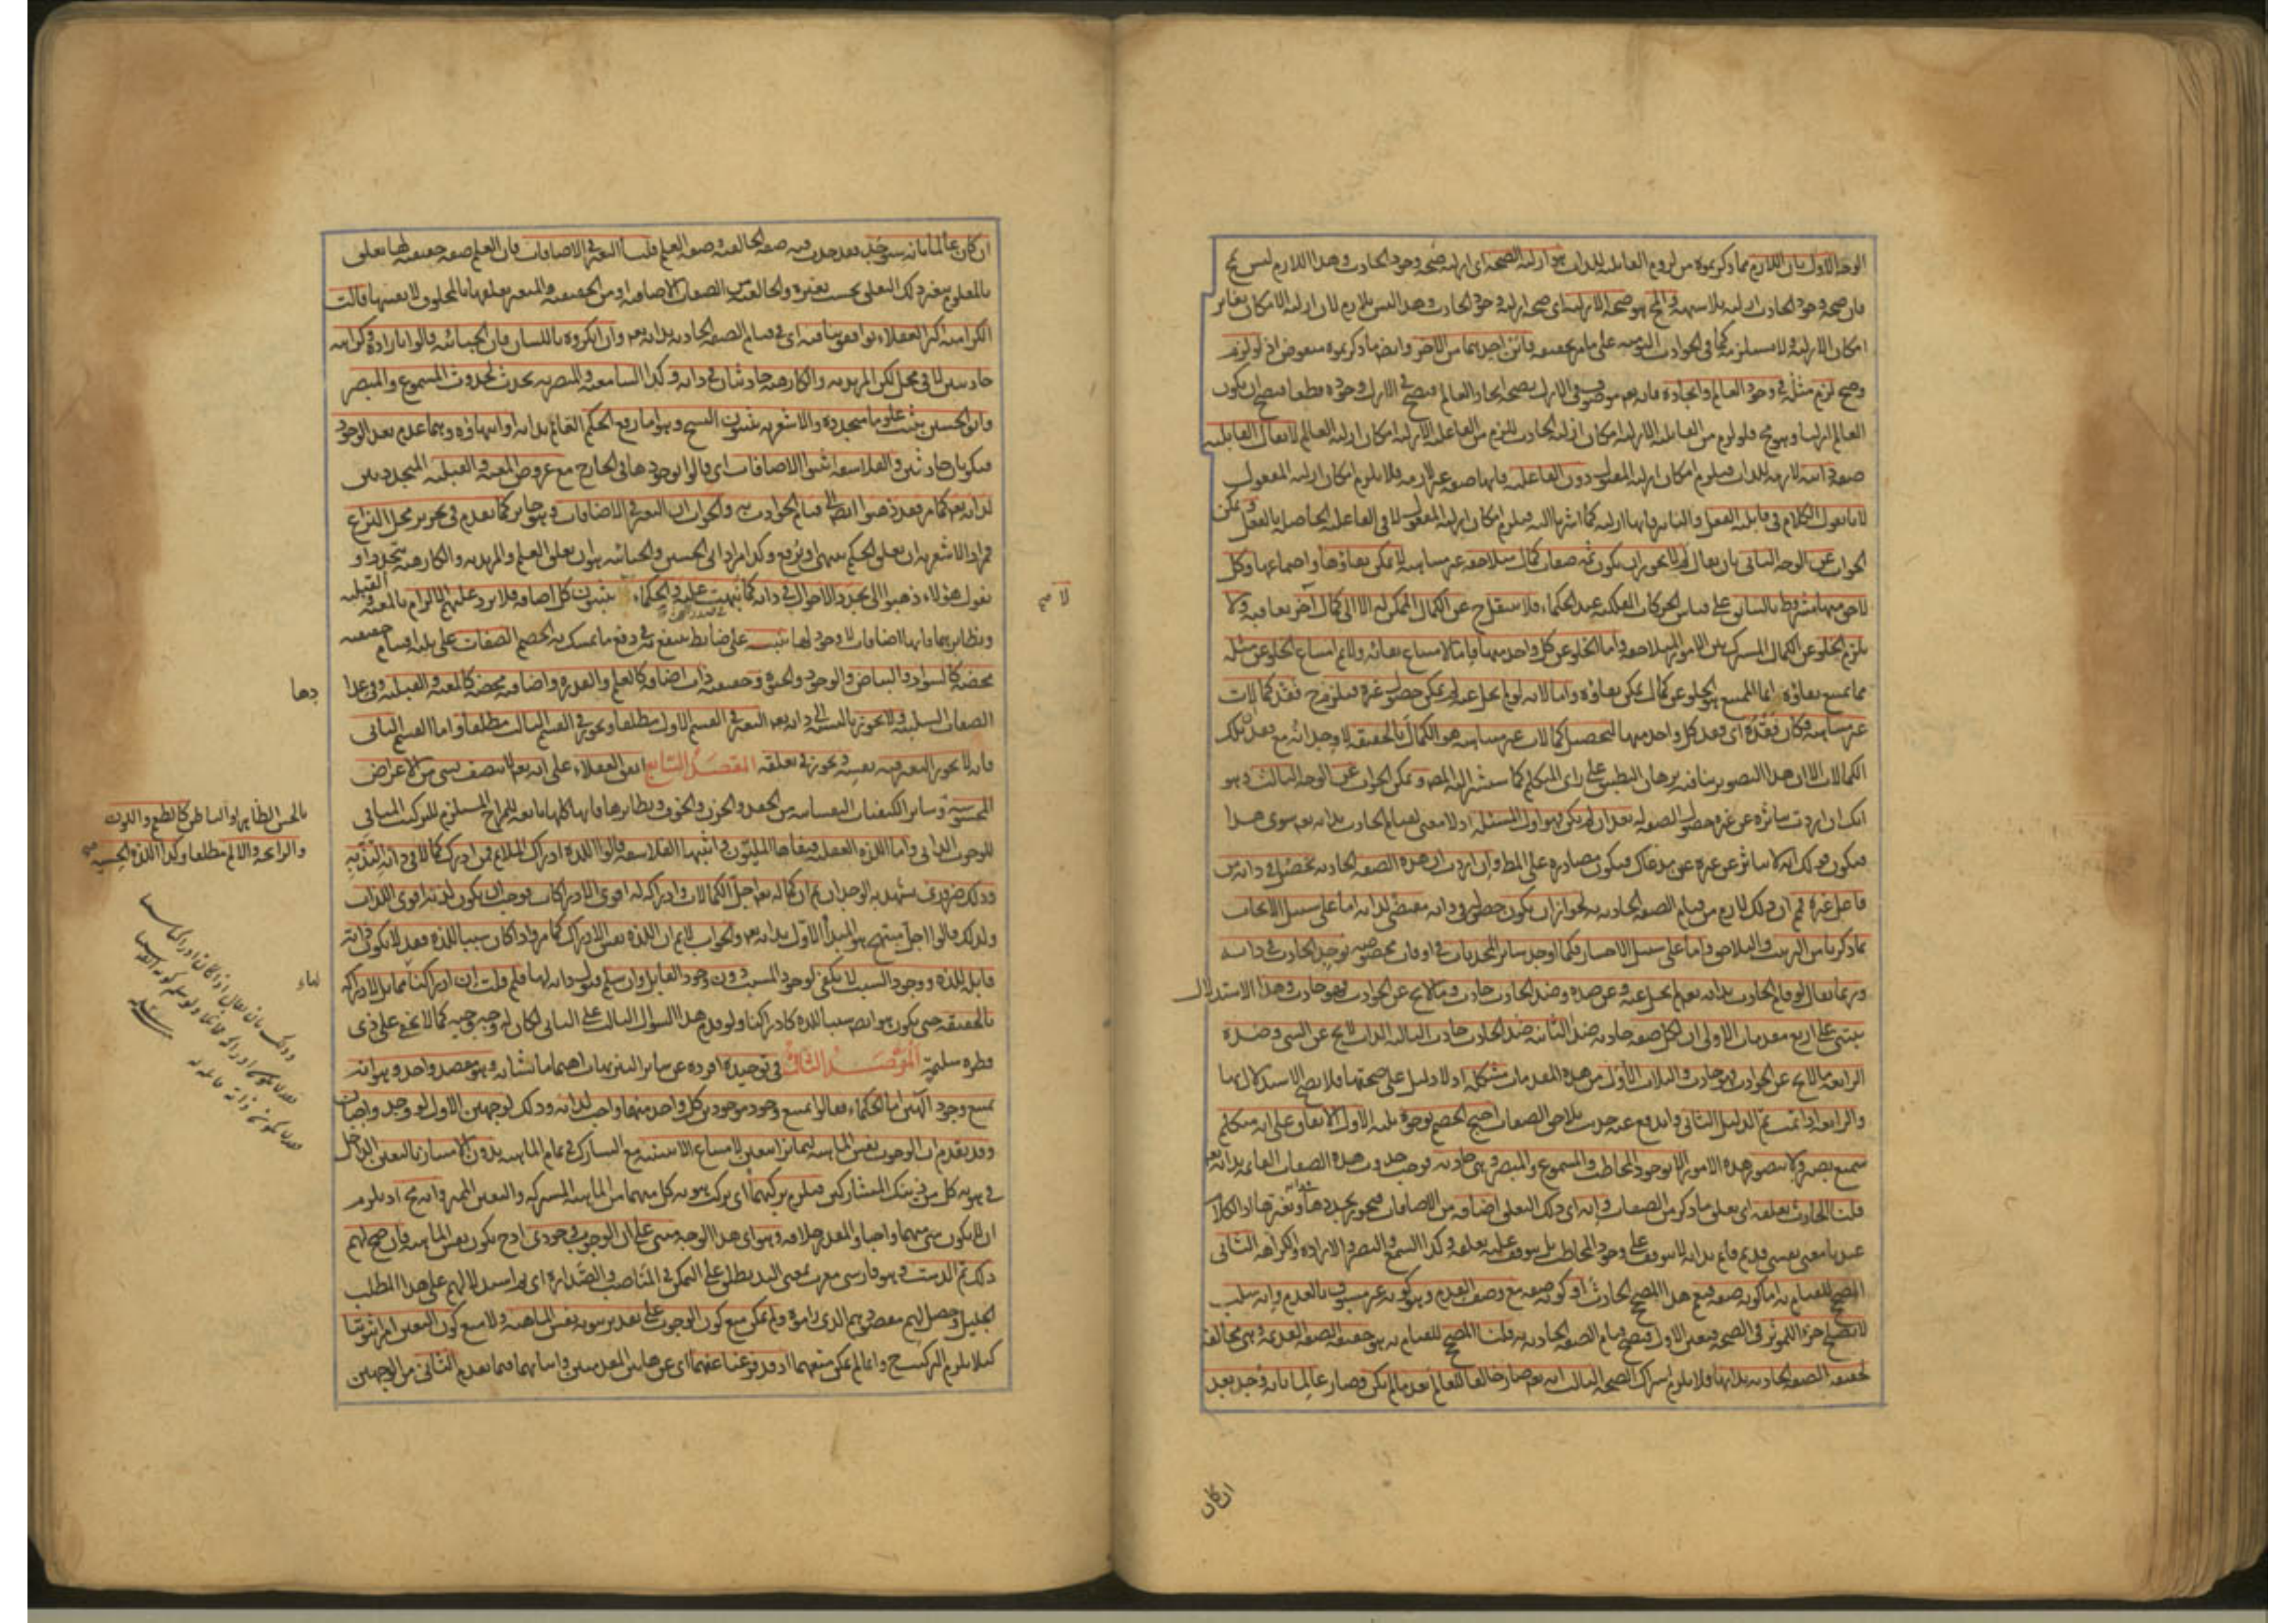 الوجه الاول بان اللازم مما ذكرتموه من لزوم القابلية للذات هو ازلية الصحة اى ازلية صحة وجود الحادث وهذا اللازم ليس بمح
فان صحة وجود الحادث ازلية بلا شبهة والمح هو صحة الازلية اى صحة ازلية وجود الحادث وهذا ليس بلازم لان ازلية الامكان يغاير
امكان الازلية ولا يستلزمه كما فى الحوادث اليومية على ما مر تحقيقه فاين احدهما من الآخر وايضا ما ذكرتموه منقوض اذ لو لزم
وصح لزم مثله فى وجود العالم وايجاده فانه تع موصوف فى الازل بصحة ايجاد العالم فيصح فى الازل وجوده قطعا فيصح ان يكون
العالم ازليا وهو مح فلو لزم من القابلية الازلية امكان ازلية الحادث للزم من الفاعلية الازلية امكان ازلية العالم لا يقال القابلية
صفة ذاتية لازمة للذات فيلزم امكان ازلية المقبول دون الفاعلية فانها صفة غير لازمة فلا يلزم امكان ازلية المفعول
لانا نقول الكلام فى قابلية الفعل والتاثير فانها ازلية كما اشرنا اليه فيلزم امكان ازلية المفعول لا فى الفاعلية الحاصلة بالفعل ويمكن
الجواب عن الوجه الثانى بان يقال لم لا يجوز ان يكون ثمه صفات كمال متلاحقة غير متناهية لا يمكن بقاؤها واجتماعها وكل
لاحق منها مشروط بالسابق على قياس الحركات الفلكية عند الحكماء فلا ينتقل ح عن الكمال الممكن له الا الى كمال آخر يعاقبه ولا
يلزم الخلو عن الكمال المشترك بين الامور المتلاحقة واما الخلو عن كل واحد منها فانما لامتناع بقائه ولا ثم امتناع الخلو عن مثله
مما يمتنع بقاؤه انما الممتنع هو الخلو عن كمال يمكن بقاؤه واما لانه لو لم يخل عنه لم يمكن حصول غيره فيلزم ح فقد كمالات
غير متناهية فكان فقده اى فقد كل واحد منها لتحصيل كمالات غير متناهية هو الكمال بالحقيقة لا وجدانه مع فقدان تلك
الكمالات الا ان هذا التصوير ينافيه برهان التطبيق على راى المتكلم كما ستشير اليه المص ويمكن الجواب عن الوجه الثالث وهو
انك ان اردت بتاثره عن غيره حصول الصفة له بعد ان لم يكن فهو اول المسئلة اذ لا معنى لقيام الحادث بذاته تع سوى هذا
فيكون قولك انه لا يتاثر عن غيره عين مدعاك فيكون مصادرة على المط وان اردت ان هذه الصفة الحادثة تحصل فى ذاته من
فاعل غيره فمم ان ذلك لازم من قيام الصفة الحادثة به لجواز ان يكون حصوله فى ذاته مقتضى لذاته اما على سبيل الايجاب
بما ذكرنا من الترتيب والتلاحق واما على سبيل الاختيار فكما اوجد سائر المحدثات فى اوقات مخصوصة يوجد الحادث فى ذاته
وربما يقال لو قام الحادث بذاته تع لم يخل عنه وعن ضده وضد الحادث حادث وما لا يخ عن الحوادث فهو حادث وهذا الاستدلال
يبتنى على اربع مقدمات الاولى ان لكل صفة حادثة ضدا الثانية ضد الحادث حادث الثالثة الذات لا يخ عن الشى وضده
الرابعة ما لا يخ عن الحوادث فهو حادث والثلاث الاول من هذه المقدمات مشكلة اذ لا دليل على صحتها فلا يصح الاستدلال بها
والرابعة اذا تمت تم الدليل الثانى واندفع عنه حديث تلاحق الصفات احتج الخصم بوجوه ثلثة الاول الاتفاق على انه متكلم
سميع بصير ولا يتصور هذه الامور الا بوجود المخاطب والمسموع والمبصر وهى حادثة فوجب حدوث هذه الصفات القائمة بذاته تع
قلنا الحادث تعلقه اى تعلق ما ذكر من الصفات وانه اى ذلك التعلق اضافة من الاضافات فيجوز تجددها وتغيرها اذ الكلام
عندنا معنى نفسى قديم قائم بذاته لا يتوقف على وجود المخاطب بل يتوقف عليه تعلقه وكذا السمع والبصر والارادة والكراهة الثانى
المصحح للقيام به اما كونه صفة فيعم هذا المصحح الحادث او كونه صفة مع وصف القدم وهو كونه غير مسبوق بالعدم وانه سلب
لا يصلح جزءا للمؤثر فى الصحة فتعين الاول فيصح قيام الصفة الحادثة به قلنا المصحح للقيام به هو حقيقة الصفة القديمة وهى مخالفة
لحقيقة الصفة الحادثة بذاتها فلا يلزم اشتراك الصحة الثالث انه تع صار خالقا للعالم بعد ما لم يكن وصار عالما بانه وجد بعد
ان كان
ان كان عالما بانه سيوجد فقد حدث فيه صفة الخالقية وصفة العلم قلنا التغير فى الاضافات فان العلم صفة حقيقية لها تعلق
بالمعلوم يتغير ذلك التعلق بحسب تغيره والخالقية من الصفات الاضافية او من الحقيقية والمتغير تعلقها بالمخلوق لا نفسها قالت
الكرامية اكثر العقلاء يوافقوننا فيه اى فى قيام الصفة الحادثة بذاته تع وان انكروه باللسان فان الجبائية قالوا بارادة وكراهية
حادثتين لا فى محل لكن المريدية والكارهية حادثتان فى ذاته وكذا السامعية والمبصرية تحدث بحدوث المسموع والمبصر
وابو الحسين يثبت علوما متجددة والاشعرية يثبتون النسخ وهو اما رفع الحكم القائم بذاته او انتهاؤه وهما عدم بعد الوجود
فيكونان حادثين والفلاسفة اثبتوا الاضافات اى قالوا بوجودها فى الخارج مع عروض المعية والقبلية المتجددتين
لذاته تع كما مر فقد ذهبوا ايضا الى قيام الحوادث به والجواب ان التغير فى الاضافات وهو جايز كما تقدم فى تحرير محل النزاع
فمراد الاشعرية ان تعلق الحكم ينتهى او يرتفع وكذا مراد ابى الحسين والجبائية هو ان تعلق العلم والمريدية والكارهية يتجدد او
نقول هؤلاء ذهبوا الى تجدد الاحوال فى ذاته كما نبهت عليه والحكماء يثبتون كل اضافة فلا يرد عليهم الالزام بالمعية والقبلية
ونظايرهما فانها اضافات لا وجود لها تنبيه على ضابط ينتفع به فى دفع ما تمسك به الخصم الصفات على ثلثة اقسام حقيقية
محضة كالسواد والبياض والوجود والحيوة وحقيقية ذات اضافة كالعلم والقدرة واضافية محضة كالمعية والقبلية وفى عدادها
الصفات السلبية ولا يجوز بالنسبة الى ذاته تع التغير فى القسم الاول مطلقا ويجوز فى القسم الثالث مطلقا واما القسم الثانى
فانه لا يجوز التغير فيه نفسه ويجوز فى تعلقه المقصد السابع اتفق العقلاء على انه تع لا يتصف بشى من الاعراض
المحسوسة وسائر الكيفيات النفسانية من الحقد والحزن والخوف ونظايرها فانها كلها تابعة للمزاج المستلزم للتركيب المنافى
للوجوب الذاتى واما اللذة العقلية فنفاها المليون واثبتها الفلاسفة قالوا اللذة ادراك الملائم فمن ادرك كمالا فى ذاته التذ به
وذلك ضرورى يشهد به الوجدان ثم ان كماله تع اجل الكمالات وادراكه اقوى الادراكات فوجب ان يكون لذته اقوى اللذات
ولذلك قالوا اجل مبتهج هو المبدأ الاول بذاته تع والجواب لا ثم ان اللذة نفس الادراك كما مر واذا كان سببا للذة فقد لا يكون ذاته
قابلة للذة ووجود السبب لا يكفى لوجود المسبب دون وجود القابل وان سلم قبول ذاته لها فلم قلت ان ادراكنا مماثل لادراكه
بالحقيقة حتى يكون هو ايضا سببا للذة كادراكنا ولو قدم هذا السؤال الثالث على الثانى لكان له وجه وجيه كما لا يخفى على ذى
فطرة سليمة المرصد الثالث فى توحيده افرده عن سائر التنزيهات اهتماما بشانه وهو مقصد واحد وهو انه
يمتنع وجود الهين اما الحكماء فقالوا يمتنع وجود موجودين كل واحد منهما واجب لذاته وذلك لوجهين الاول لو وجد واجبان
وقد تقدم ان الوجوب نفس الماهية لتمايزا بتعين لامتناع الاثنينية مع التشارك فى تمام الماهية بدون الامتياز بالتعين الداخل
فى هوية كل من ذينك المتشاركين فيلزم تركبهما اى تركب هوية كل منهما من الماهية المشتركة والتعين المميز وانه مح اذ يلزم
ان لا يكون شى منهما واجبا والمقدر خلافه وهو اى هذا الوجه مبنى على ان الوجوب وجودى اذ ح يكون نفس الماهية فان صح لهم
ذلك تم الدست وهو فارسى معرب بمعنى اليد يطلق على التمكن فى المناصب والصدارة اى تم استدلالهم على هذا المطلب
الجليل وحصل لهم مقصودهم الذى راموه ولم يمكن منع كون الوجوب على تقدير ثبوته نفس الماهية ولا منع كون التعين امرا ثبوتيا
كيلا يلزم التركيب وانما لم يمكن منعهما اذ قد فرغنا عنهما اى عن هاتين المقدمتين واثباتهما فيما تقدم الثانى من الوجهين
لا صح
دها
بالحس الظاهر او الباطن كالطعم واللون
والرائحة والالم مطلقا وكذا اللذة الحسية صح